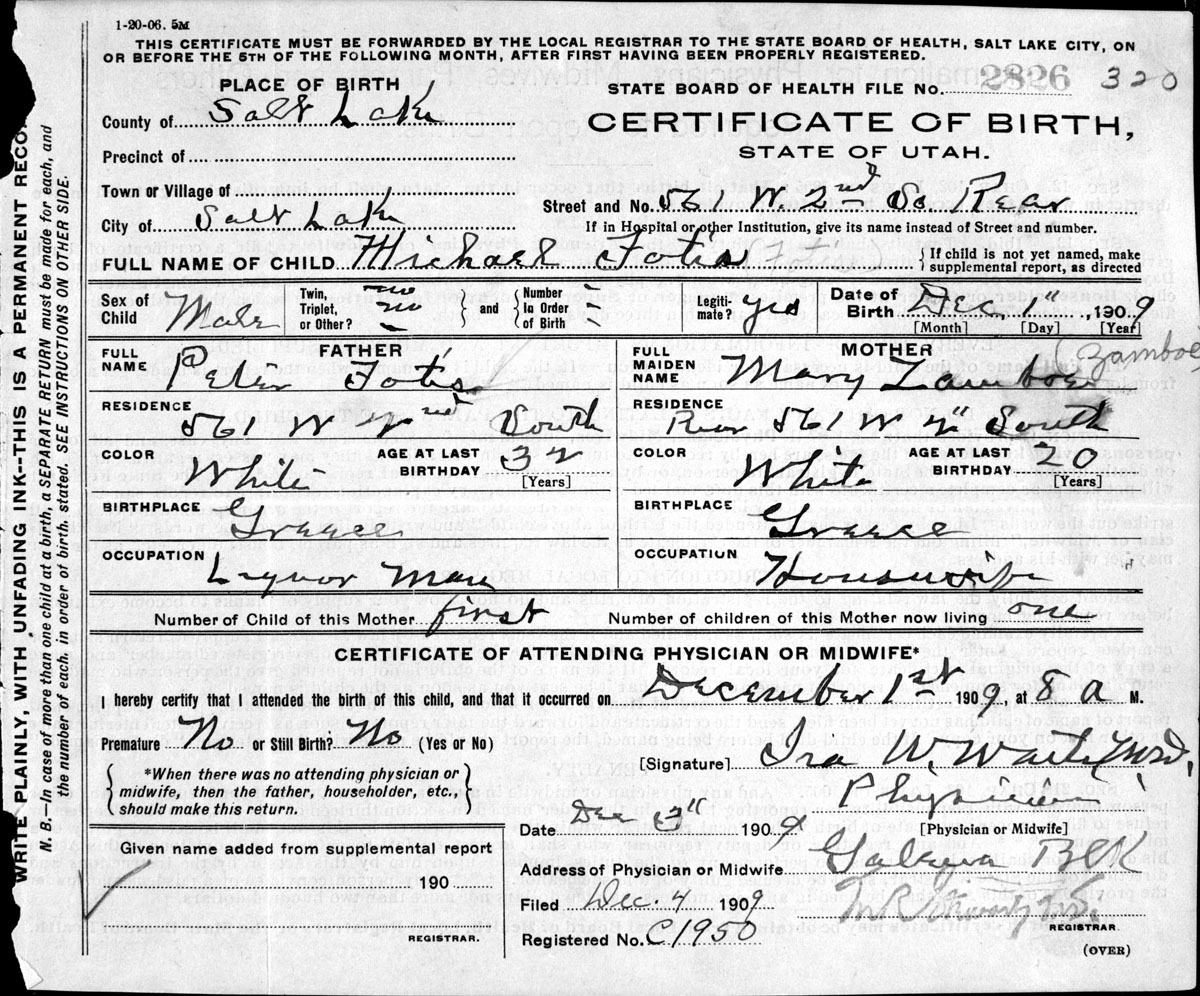 1-20-06. 5M
THIS CERTIFICATE MUST BE FORWARDED BY THE LOCAL REGISTRAR TO THE STATE BOARD OF HEALTH, SALT LAKE CITY, ON
OR BEFORE THE 5TH OF THE FOLLOWING MONTH, AFTER FIRST HAVING BEEN PROPERLY REGISTERED.
PLACE OF BIRTH
STATE BOARD OF HEALTH FILE NO. 2826 320
County of Salt Lake
CERTIFICATE OF BIRTH,
STATE OF UTAH.
Precinct of
Town or Village of
Street and No. 561 W. 2nd So Rear
City of Salt Lake
If in Hospital or other Institution, give its name instead of Street and number.
FULL NAME OF CHILD Michael Fotis
If child is not yet named, make
supplemental report, as directed
Sex of Child Male
Twin, Triplet, or Other? no no
and
Number In Order of Birth
Legiti- mate? yes
Date of Birth Dec, 1", 1909
[Month] [Day] [Year]
FATHER
MOTHER (Zamboe
FULL NAME Peter Fotis
FULL MAIDEN NAME Mary
RESIDENCE
561 W 2nd South
RESIDENCE
Rear 561 W 2" South
COLOR White
AGE AT LAST BIRTHDAY 32 [Years]
COLOR White
AGE AT LAST BIRTHDAY 20 [Years]
BIRTHPLACE Greece
BIRTHPLACE Greece
OCCUPATION Liquor Man
OCCUPATION Housewife
Number of Child of this Mother first
Number of children of this Mother now living one
CERTIFICATE OF ATTENDING PHYSICIAN OR MIDWIFE*
I hereby certify that I attended the birth of this child, and that it occurred on December 1st 1909, at 8 a M.
Premature No or Still Birth? No (Yes or No)
[Signature] Ira W.
*When there was no attending physician or
midwife, then the father, householder, etc.,
should make this return.
Physician
Date Dec 3" 1909
[Physician or Midwife]
Given name added from supplemental report
Address of Physician or Midwife
190
Filed Dec. 4 1909
REGISTRAR.
Registered No. C1950
REGISTRAR.
(OVER)
WRITE PLAINLY, WITH UNFADING INK--THIS IS A PERMANENT RECO
N. B.—In case of more than one child at a birth, a SEPARATE RETURN must be made for each, and
the number of each, in order of birth, stated. SEE INSTRUCTIONS ON OTHER SIDE.